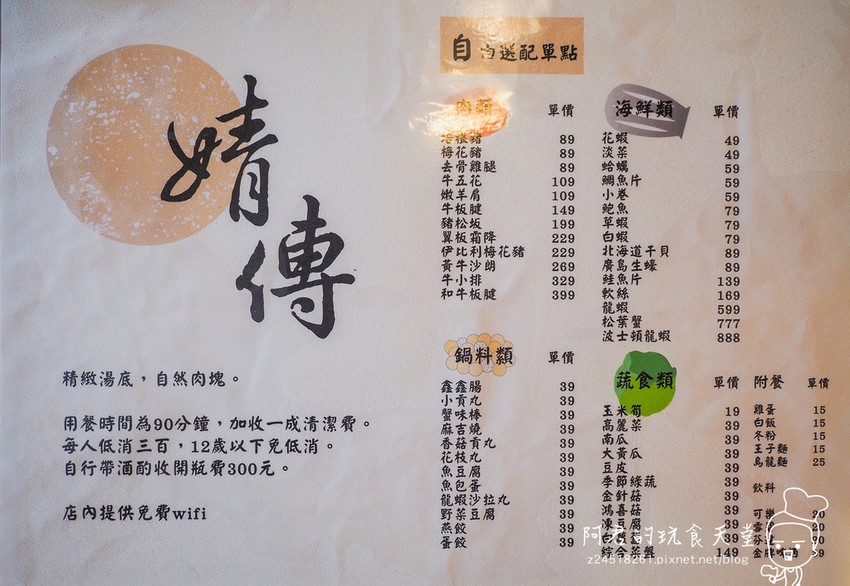 婧
傳
精緻湯底，自然肉塊。
用餐時間為90分鐘，加收一成清潔費。
每人低消三百，12歲以下免低消。
自行帶酒酌收開瓶費300元。
店內提供免費wifi
自由選配單點
肉類 單價
培根豬 89
梅花豬 89
去骨雞腿 89
牛五花 109
嫩羊肩 109
牛板腱 149
豬松坂 199
翼板霜降 229
伊比利梅花豬 229
黃牛沙朗 269
牛小排 329
和牛板腱 399
海鮮類 單價
花蝦 49
淡菜 49
蛤蠣 59
鯛魚片 59
小卷 59
鮑魚 79
草蝦 79
白蝦 79
北海道干貝 89
廣島生蠔 89
鮭魚片 139
軟絲 169
龍蝦 599
松葉蟹 777
波士頓龍蝦 888
鍋料類 單價
鑫鑫腸 39
小貢丸 39
蟹味棒 39
麻吉燒 39
香菇貢丸 39
花枝丸 39
魚豆腐 39
魚包蛋 39
龍蝦沙拉丸 39
野菜豆腐 39
燕餃 39
蛋餃 39
蔬食類 單價
玉米筍 19
高麗菜 39
南瓜 39
大黃瓜 39
豆皮 39
季節綠蔬 39
金針菇 39
鴻喜菇 39
凍豆腐 39
綜合菜盤 149
附餐 單價
雞蛋 15
白飯 15
冬粉 15
王子麵 15
烏龍麵 25
飲料
可樂 20
20
阿君的玩食天堂
z24518261.pixnet.net/blog